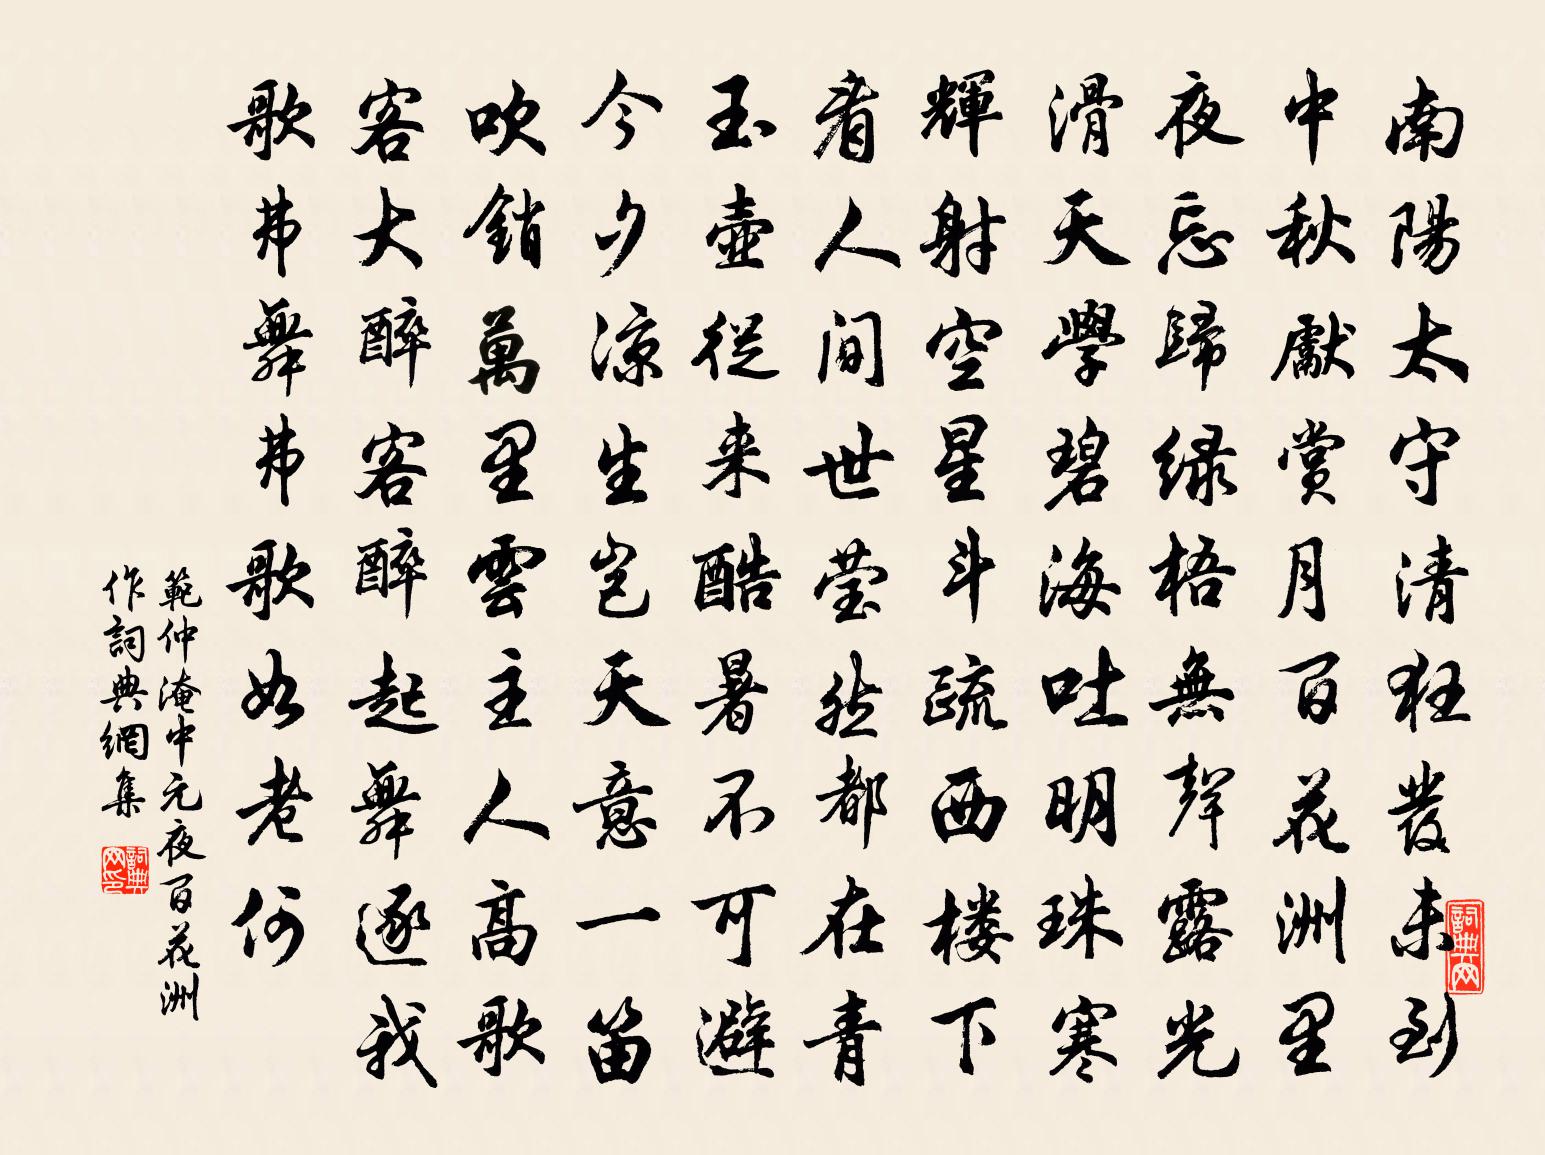 南陽太守清狂發未到
中秋獻賞月百花洲里
夜忘歸綠梧無聲露光
滑天學碧海吐明珠寒
輝射空星斗疏西楼下
看人间世莹然都在青
玉壺從来酷暑不可避
今夕涼生岂天意一笛
吹銷萬里雲主人高歌
客大醉客醉起舞逐我
歌弗舞弗歌如老何
範仲淹中元夜百花洲
作詞典網集
詞典网
詞典网印